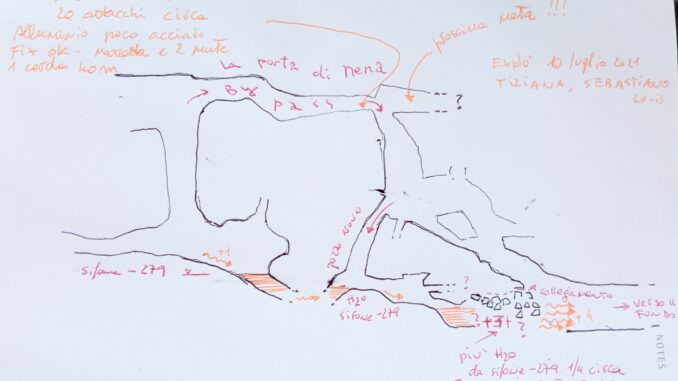 20 attacchi circa
Alluminio poco acciaio
Fix ok - mazzetta e 2 mute
1 corda 40 m
prossima meta !!!
Explò 10 luglio 2021
TIZIANA, SEBASTIANO
Louis
La porta di nena
By pass
?
?
pozzo nuovo
+1
sifone -279
H2O
sifone -279
?
collegamento
VERSO IL
FONDO
+4
+3+ ?
più H2O
da sifone -279 1/4 circa
NOTES